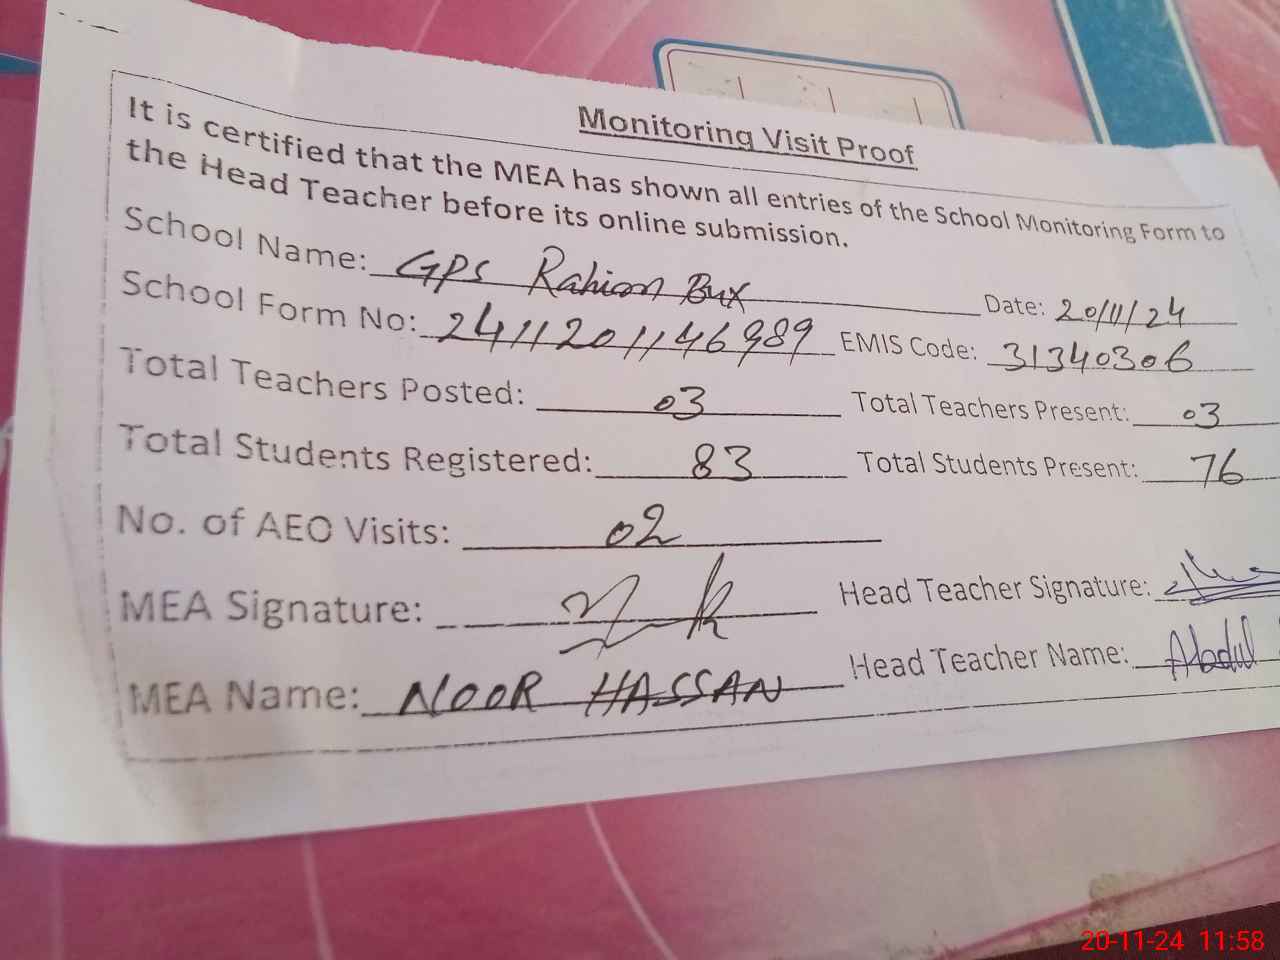 Monitoring Visit Proof
It is certified that the MEA has shown all entries of the School Monitoring Form to
the Head Teacher before its online submission.
School Name: GPS Rahiom Bux Date: 20/11/24
School Form No: 2411201146989 EMIS Code: 31340306
Total Teachers Posted: 03 Total Teachers Present: 03
Total Students Registered: 83 Total Students Present: 76
No. of AEO Visits: 02
MEA Signature: Head Teacher Signature:
MEA Name: NOOR HASSAN Head Teacher Name: Abdul
20-11-24 11:58